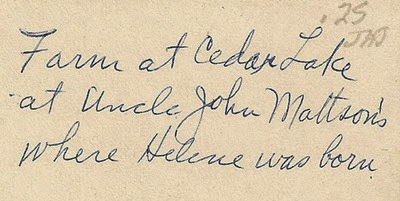 .25
Farm at Cedar Lake
at Uncle John Mattson's
where Helene was born.